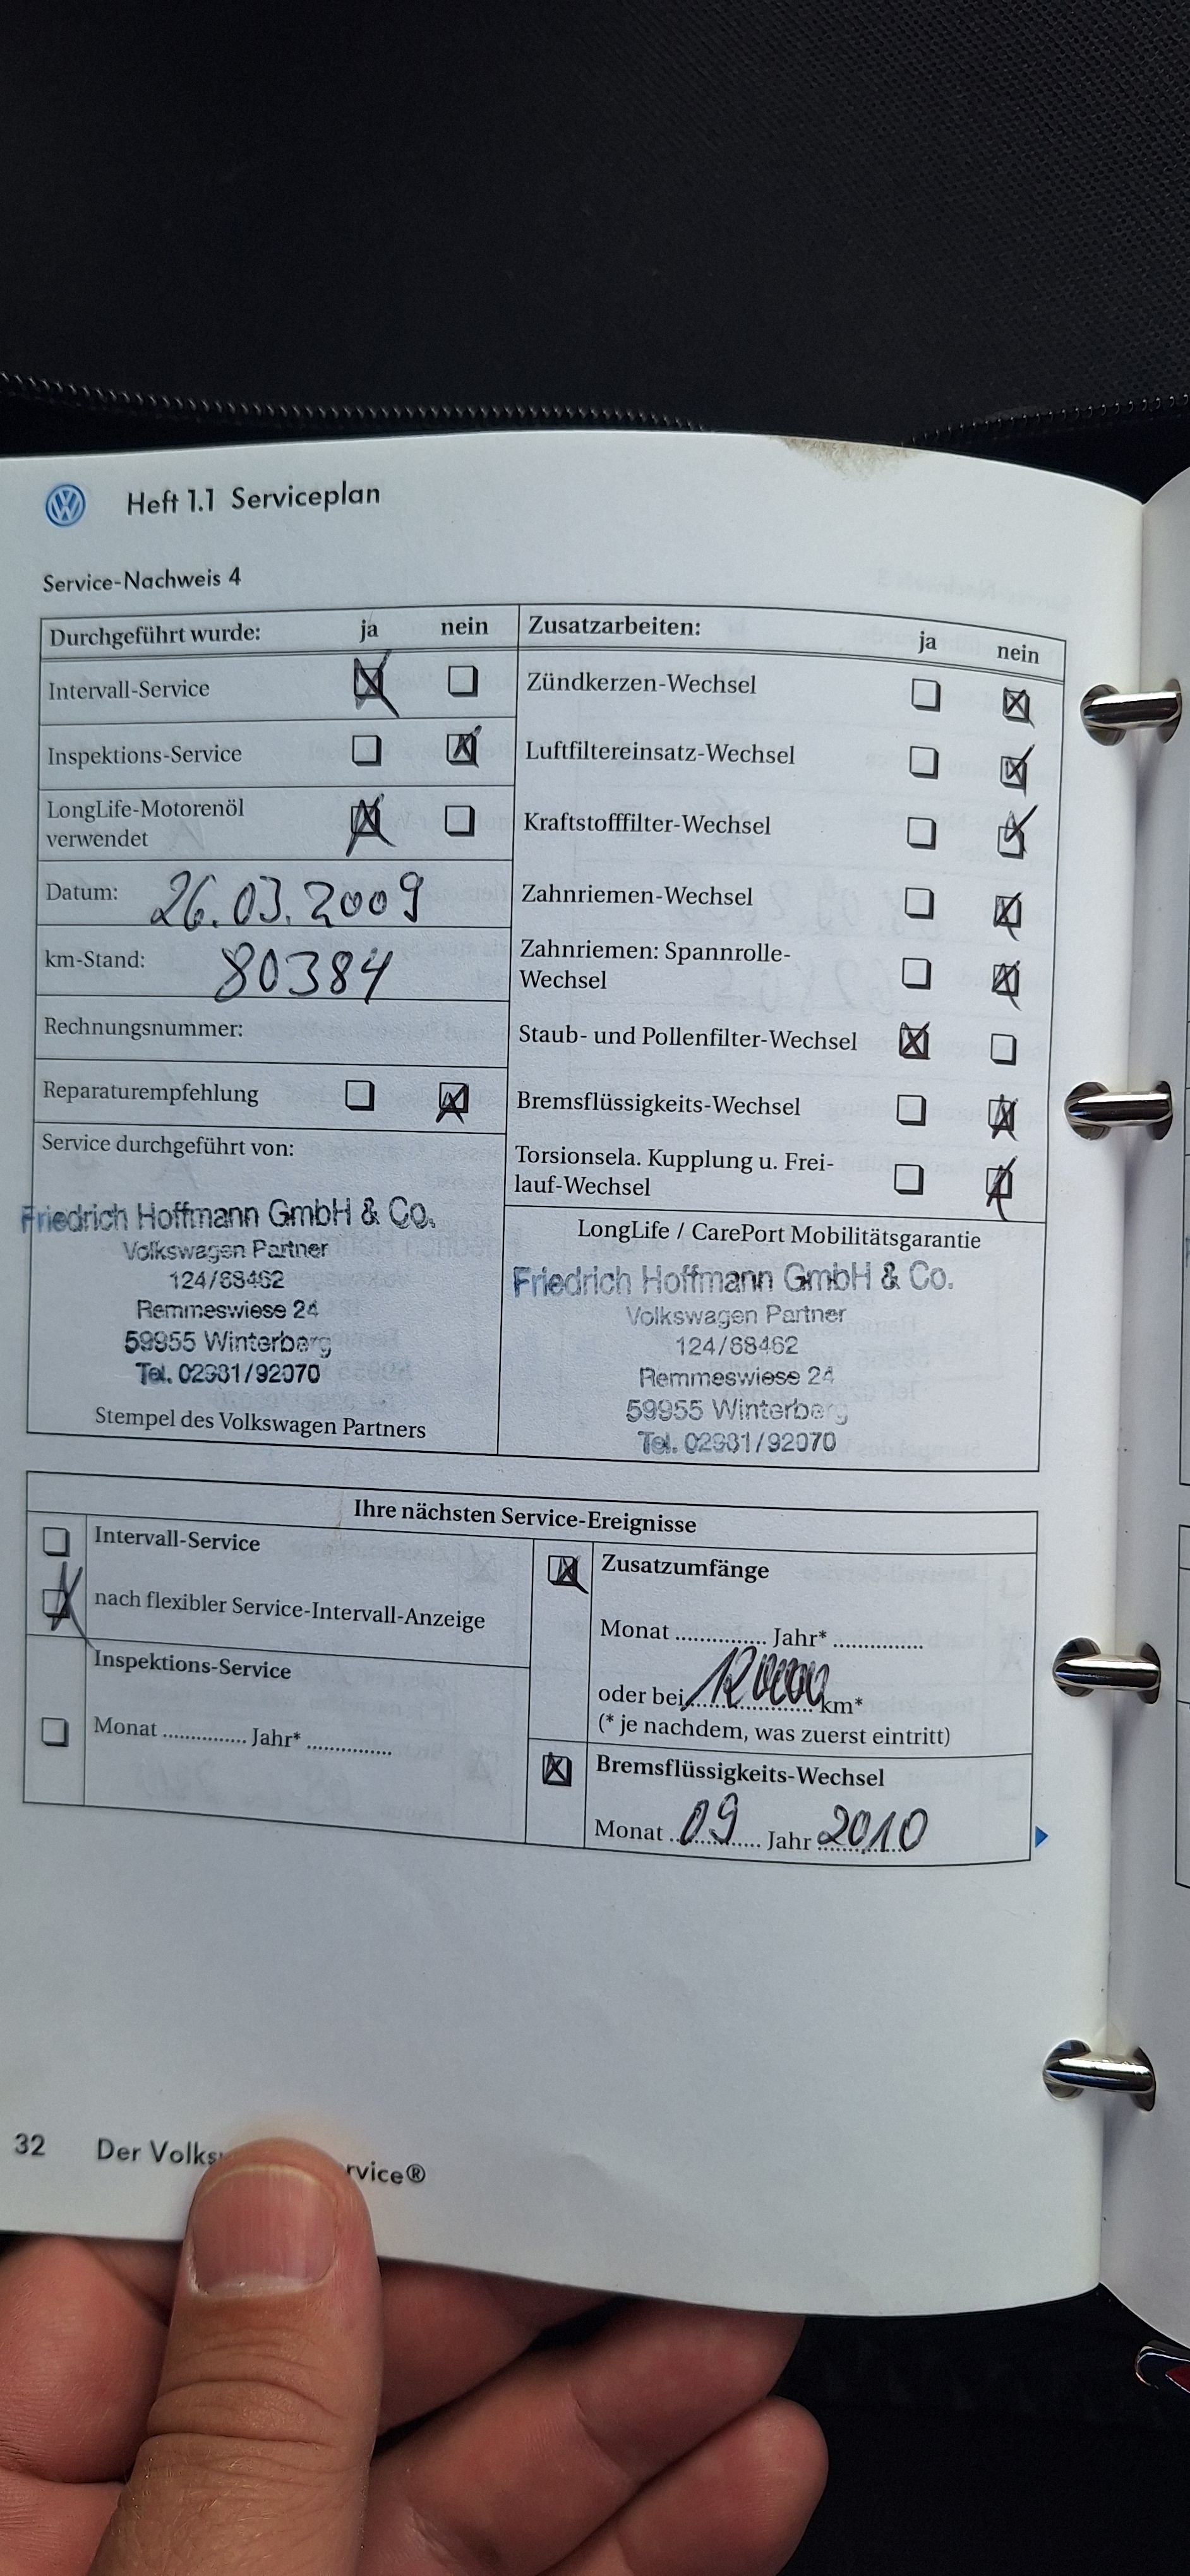 Heft 1.1 Serviceplan
Service-Nachweis 4
Durchgeführt wurde: ja nein
Intervall-Service
Inspektions-Service
LongLife-Motorenöl
verwendet
Datum: 26.03.2009
km-Stand: 80384
Rechnungsnummer:
Reparaturempfehlung
Service durchgeführt von:
Friedrich Hoffmann GmbH & Co.
Volkswagen Partner
124/68462
Remmeswiese 24
59955 Winterberg
Tel. 02981/92070
Stempel des Volkswagen Partners
Zusatzarbeiten: ja nein
Zündkerzen-Wechsel
Luftfiltereinsatz-Wechsel
Kraftstofffilter-Wechsel
Zahnriemen-Wechsel
Zahnriemen: Spannrolle-
Wechsel
Staub- und Pollenfilter-Wechsel
Bremsflüssigkeits-Wechsel
Torsionsela. Kupplung u. Frei-
lauf-Wechsel
LongLife / CarePort Mobilitätsgarantie
Friedrich Hoffmann GmbH & Co.
Volkswagen Partner
124/68462
Remmeswiese 24
59955 Winterberg
Tel. 02981/92070
Ihre nächsten Service-Ereignisse
Intervall-Service
nach flexibler Service-Intervall-Anzeige
Inspektions-Service
Monat ............... Jahr* ...............
Zusatzumfänge
Monat ............... Jahr* ...............
oder bei 120000 km*
(* je nachdem, was zuerst eintritt)
Bremsflüssigkeits-Wechsel
Monat 09 Jahr 2010
32 Der